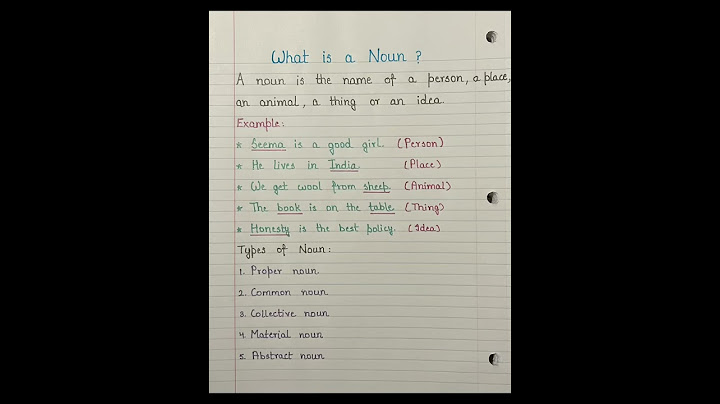 What is a Noun ?
A noun is the name of a person, a place,
an animal, a thing or an idea.
Example:
* Seema is a good girl. (Person)
* He lives in India. (Place)
* We get wool from sheep. (Animal)
* The book is on the table (Thing)
* Honesty is the best policy. (Idea)
Types of Noun:
1. Proper noun.
2. Common noun
3. Collective noun
4. Material noun
5. Abstract noun